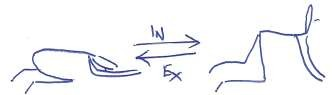 IN
Ex